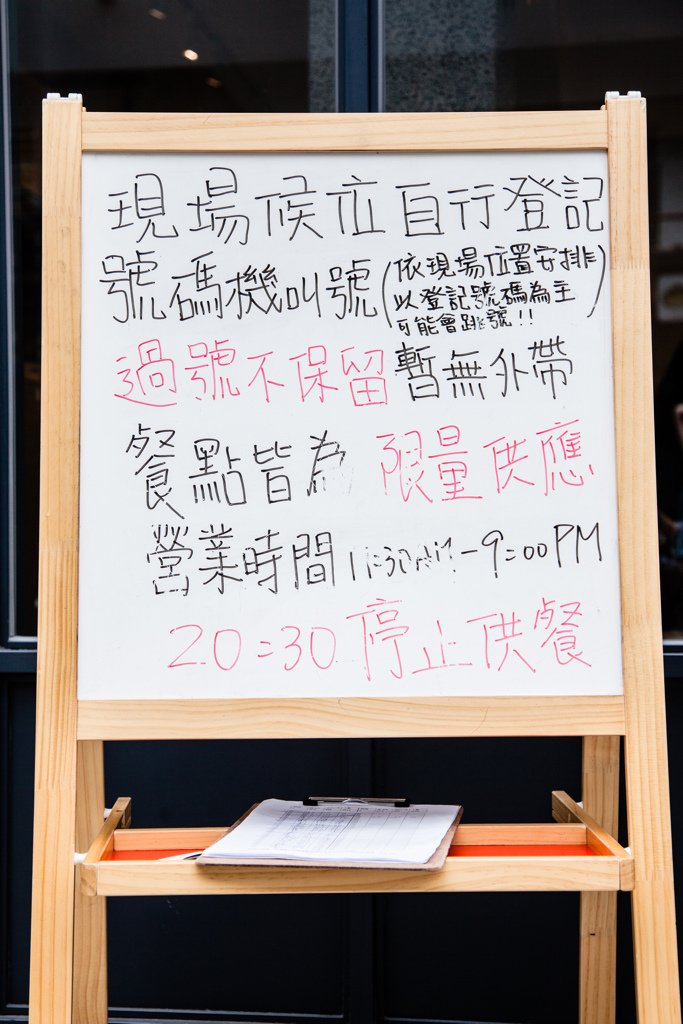 現場候位自行登記
號碼機叫號(依現場位置安排
以登記號碼為主
可能會跳號!!)
過號不保留暫無外帶
餐點皆為 限量供應
營業時間 11:30AM-9:00PM
20:30停止供餐